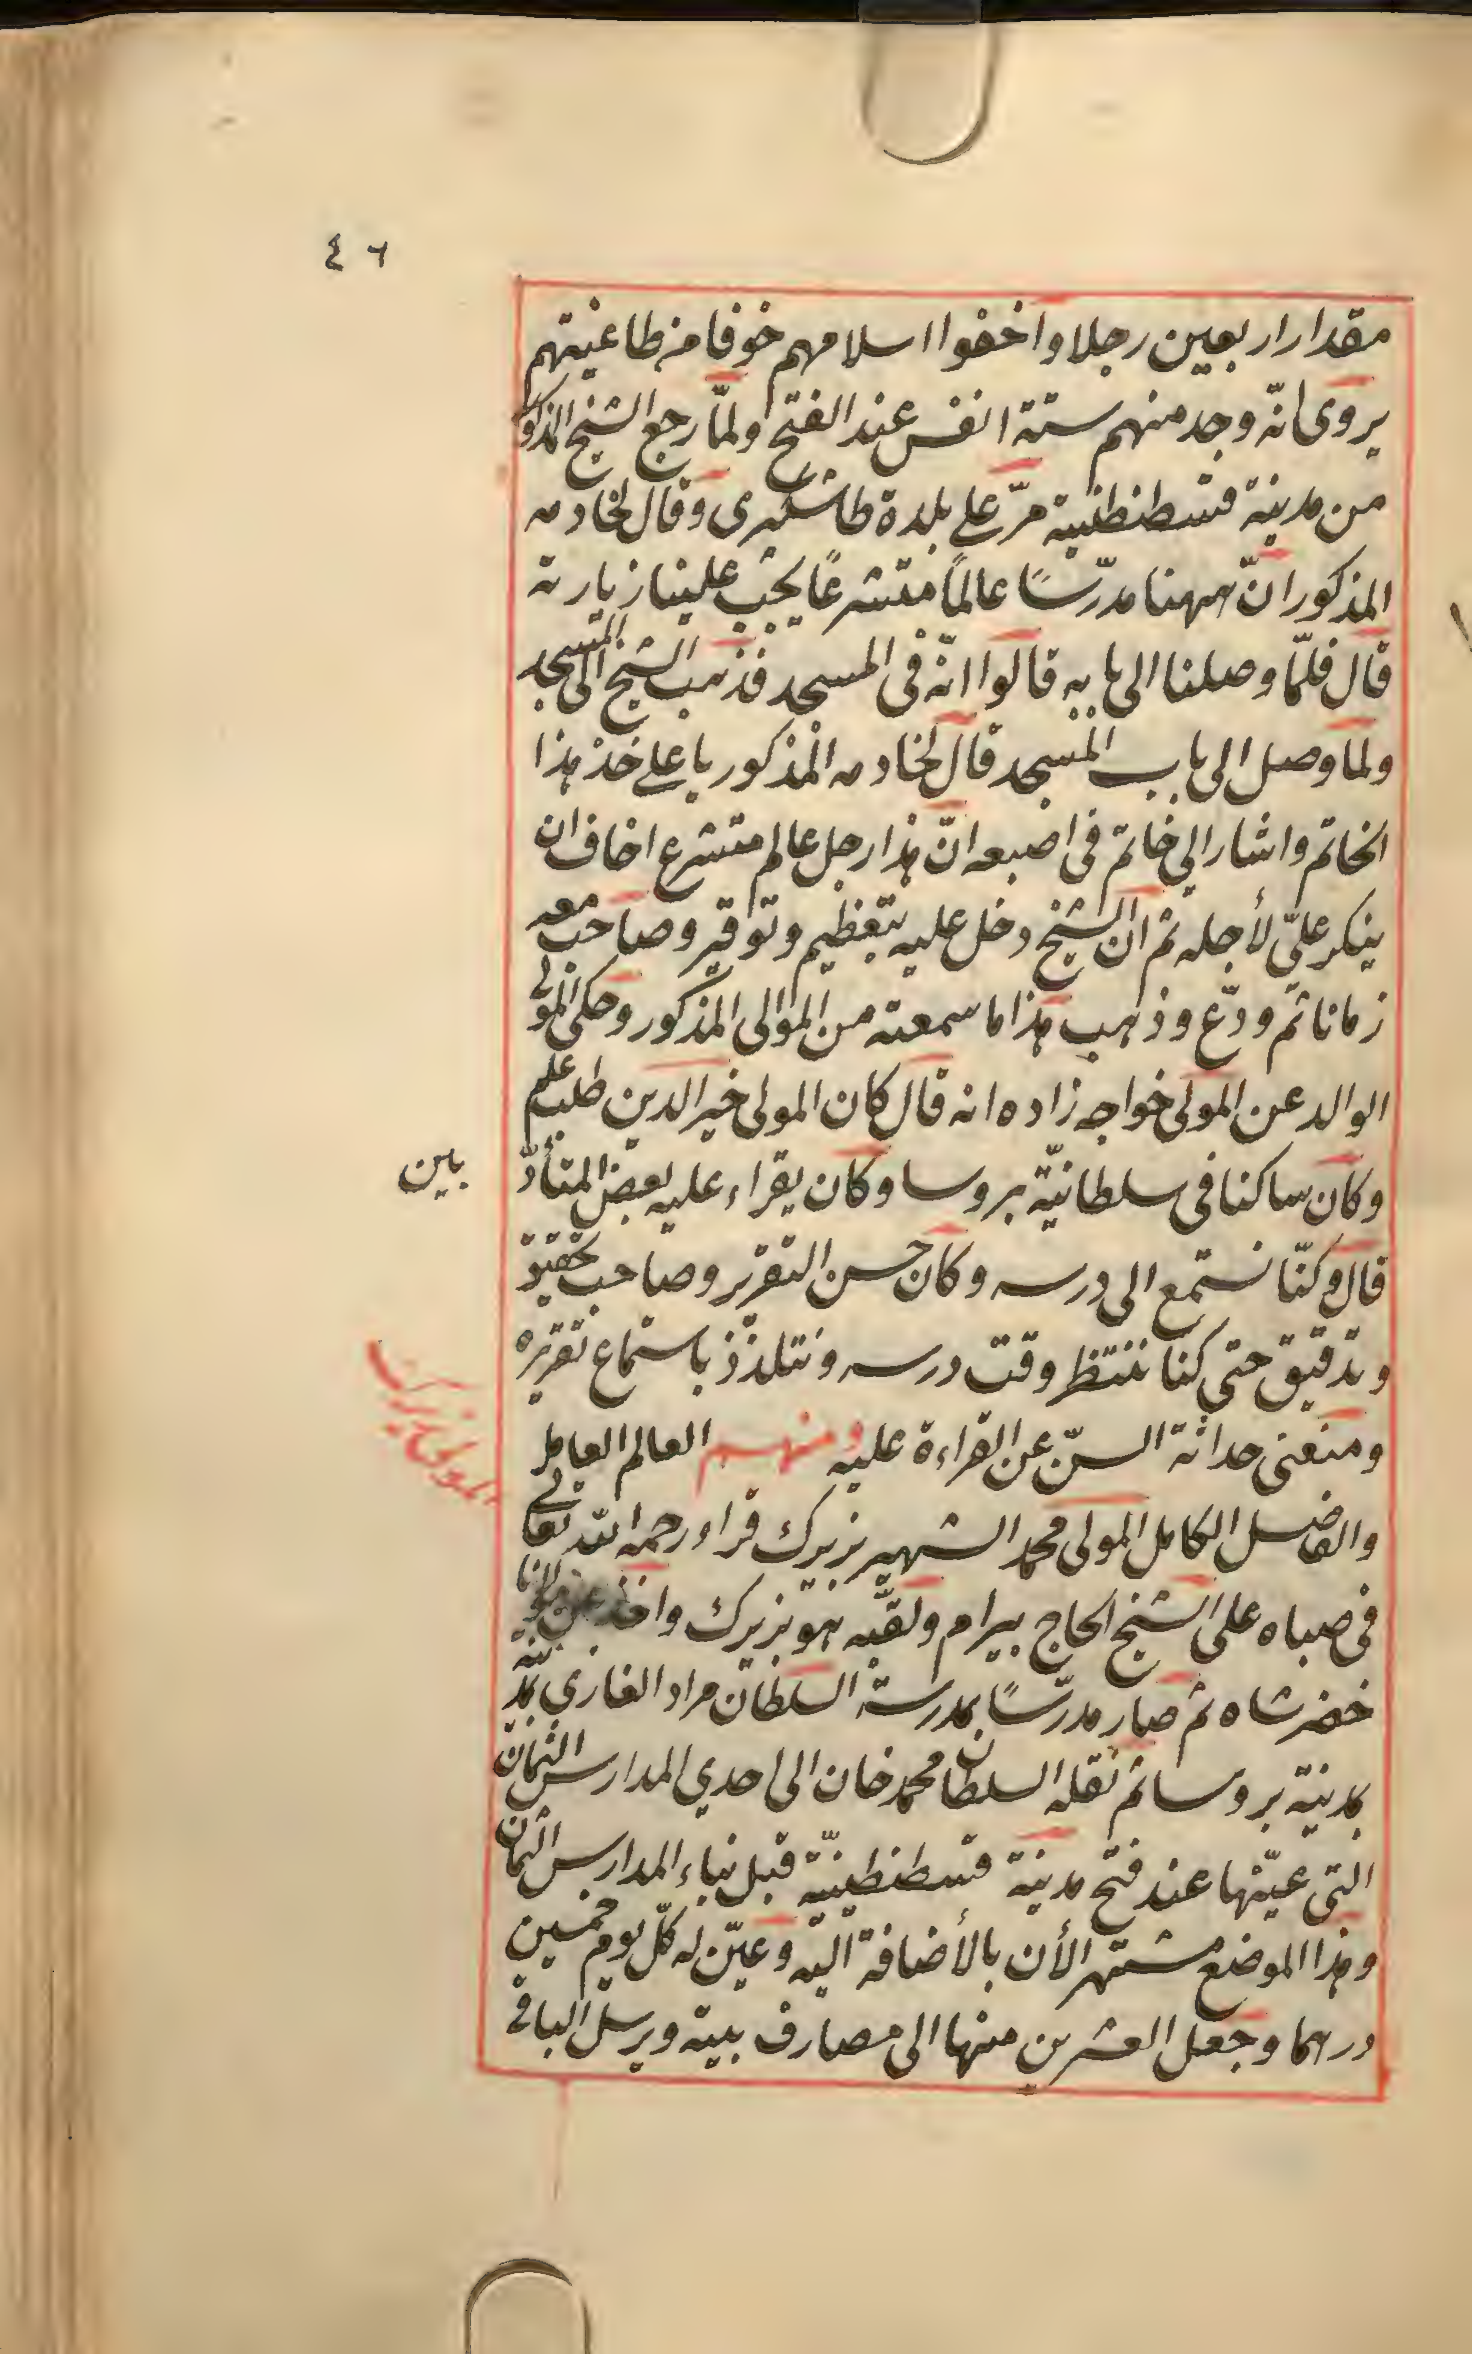 ٤٦
مقدار اربعين رجلا واخفوا اسلامهم خوفا من طاغيتهم
يروى انّه وجد منهم ستة انفس عند الفتح ولمّا رجع الشيخ المذكو
من مدينة قسطنطنية مرّ على بلدة طاشكبرى وقال لخادمه
المذكور انّ ههنا مدرّسًا عالمًا متشرعًا يجب علينا زيارته
قال فلمّا وصلنا الى بابه قالوا انّه فى المسجد فذهب الشيخ الى المسجد
ولما وصل الى باب المسجد قال لخادمه المذكور يا على خذ هذا
الخاتم واشار الى خاتم فى اصبعه انّ هذا رجل عالم متشرع اخاف ان
ينكر عليّ لأجله ثم ان الشيخ دخل عليه بتعظيم وتوقير وصاحب معه
زمانا ثم ودّع وذهب هذا ما سمعته من الموالى المذكور وحكى المولى
الوالد عن المولى خواجه زاده انه قال كان المولى خير الدين طلب علم
وكان ساكنا فى سلطانيّة بروسا وكان يقراء عليه بعض المتأدّ
بين
قال وكنّا نستمع الى درسه وكان حسن التقرير وصاحب تحقيق
وتدقيق حتى كنا ننتظر وقت درسه ونتلذّذ باستماع تقريره
ومنعنى حداثة السنّ عن القراءة عليه ومنهم العالم العامل
المولى زيرك
والفاضل الكامل المولى محمد الشهير بزيرك قراء رحمه الله تعالى
فى صباه على الشيخ الحاج بيرام ولقّبه هو بزيرك واخذ عن مولانا
خضر شاه ثم صار مدرّسًا بمدرسة السلطان مراد الغازى بمدينة
بمدينة بروسا ثم نقله السلطان محمد خان الى احدي المدارس الثمان
التى عيّنها عند فتح مدينة قسطنطينيّة قبل بناء المدارس الثمان
وهذا الموضع مشتهر الأن بالأضافة اليه وعيّن له كلّ يوم خمسين
درهما وجعل العشرين منها الى مصارف بيته ويرسل الباقى